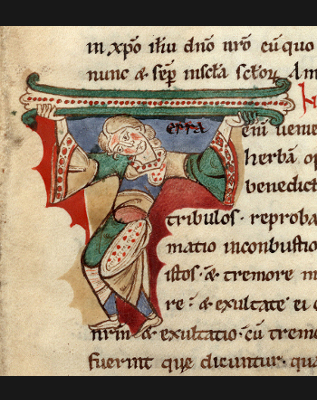 in xp̄o ih̄u dn̄o nr̄o cū quo
nunc & sēp in scl̄a scl̄oꝝ Am
erra
em uenie
herbā op
benedict
tribulos · reproba
matio inconbustio
istos · & tremore in
re · & exultate ei c
nr̄m & exultatio · cū treme
fuerint que dicuntur · qua